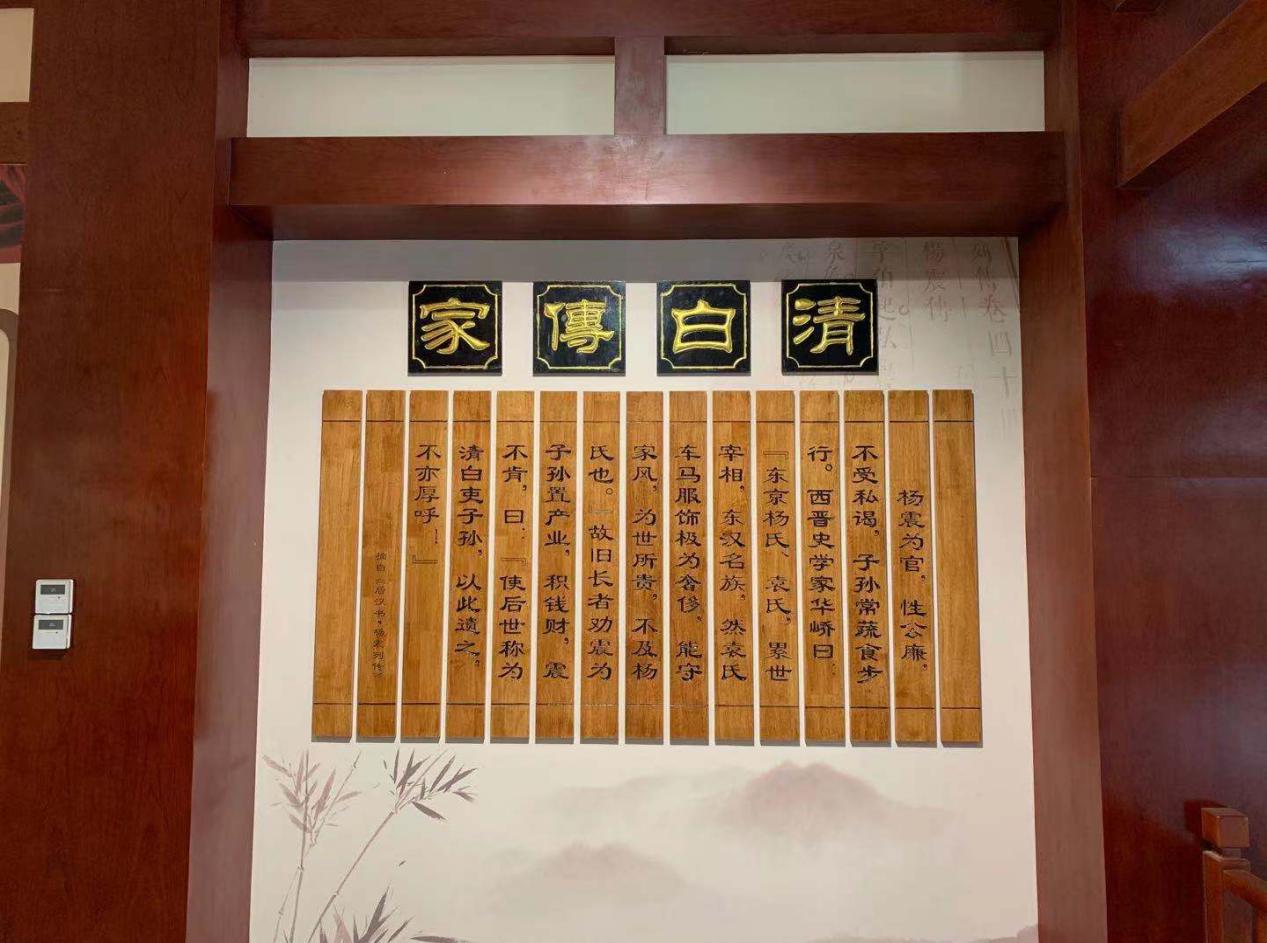 清白傳家
杨震为官，性公廉，
不受私谒，子孙常蔬食步
行。西晋史学家华峤曰：
『东京杨氏、袁氏，累世
宰相，东汉名族，然袁氏
车马服饰极为奢侈，能守
家风，为世所贵，不及杨
氏也。』故旧长者劝震为
子孙置产业，积钱财，震
不肯，曰：『使后世称为
清白吏子孙，以此遗之，
不亦厚呼！』
摘自《后汉书·杨震列传》
楊震傳